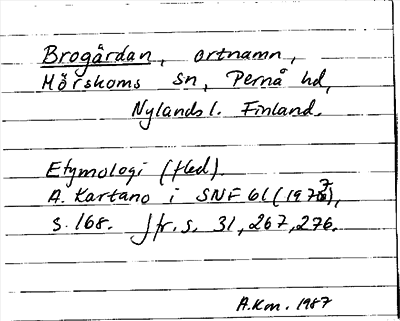 Brogårdan, ortnamn,
Mörskoms sn, Pernå hd,
Nylands l. Finland.
Etymologi (fled).
A. Kartano i SNF 61 (1973),
s. 168. Jfr. s. 31, 267, 276.
A.Km. 1987